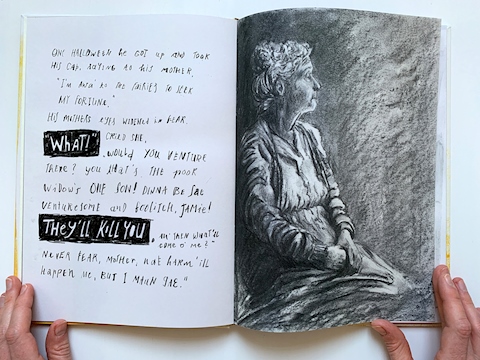 ONE HALLOWEEN he GOT UP AND TOOK
HIS CAP, SAYING TO his MOTHER,
"I'm AWA' TO THE FAIRIES TO SEEK
MY FORTUNE."
HIS MOTHERS EYES WIDENED WITH FEAR.
"WHAT!" CRIED SHE,
WOULD YOU VENTURE
There? you that's THE POOR
Widow's ONE SON! DINNA Be Sae
Venturesome and foolitch, JAMIE!
THEy'LL KILL YOU,
AN' THEN WHAT'LL
COME O' ME?"
NEVER FEAR, MOTHER, NAE HARM 'ill
happen me, BUT I MAUN GAE."